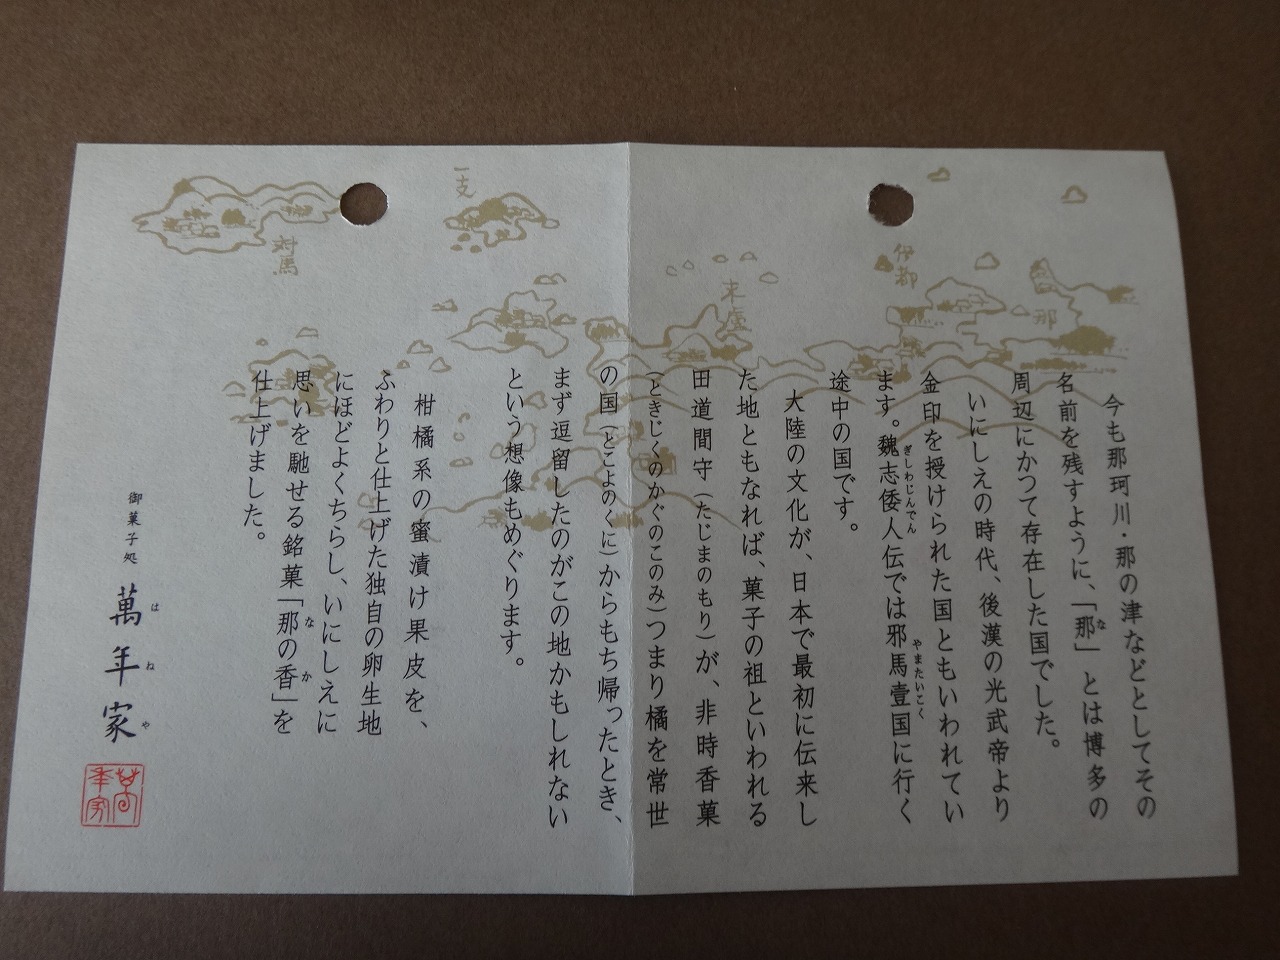 今も那珂川・那の津などとしてその
名前を残すように、「那」とは博多の
周辺にかつて存在した国でした。
いにしえの時代、後漢の光武帝より
金印を授けられた国ともいわれてい
ます。魏志倭人伝では邪馬壹国に行く
途中の国です。
大陸の文化が、日本で最初に伝来し
た地ともなれば、菓子の祖といわれる
田道間守(たじまのもり)が、非時香菓
(ときじくのかぐのこのみ)つまり橘を常世
の国(とこよのくに)からもち帰ったとき、
まず逗留したのがこの地かもしれない
という想像もめぐります。
柑橘系の蜜漬け果皮を、
ふわりと仕上げた独自の卵生地
にほどよくちらし、いにしえに
思いを馳せる銘菓「那の香」を
仕上げました。
御菓子処 萬年家
な
ぎしわじんでん
やまたいこく
な か
はねや
那
伊都
末盧
一支
対馬
萬年家